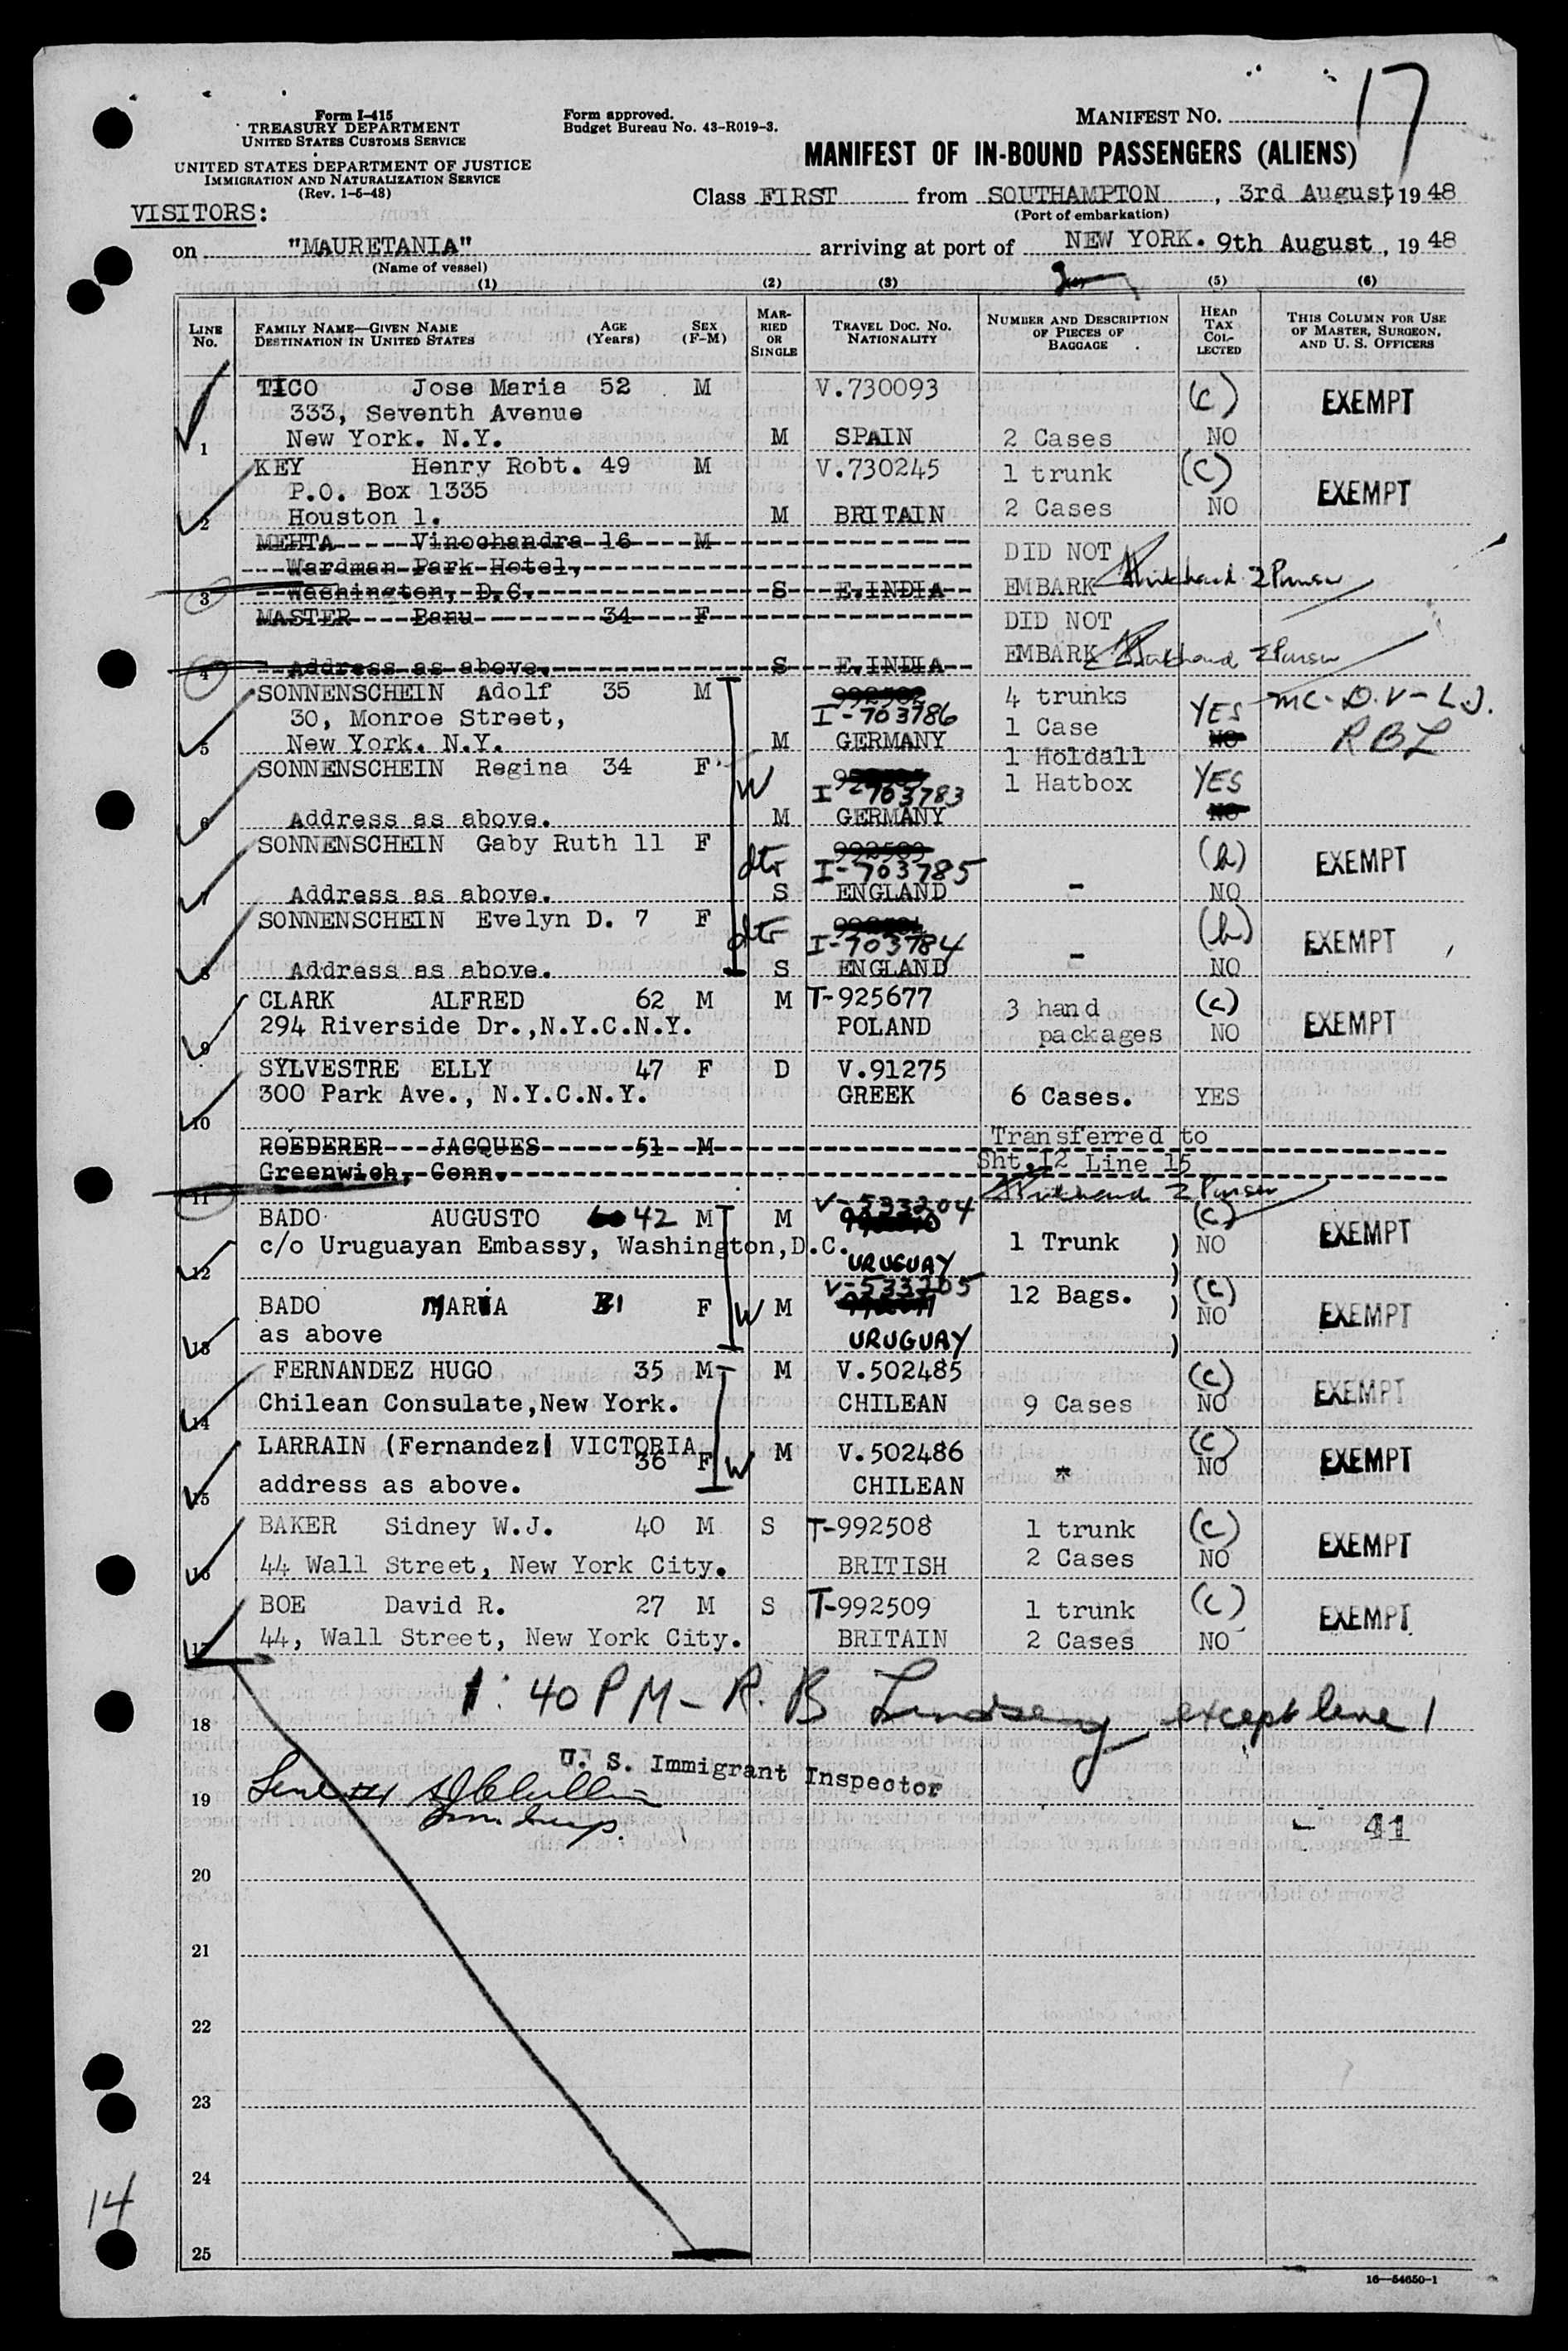 17
Form I-415
TREASURY DEPARTMENT
UNITED STATES CUSTOMS SERVICE
UNITED STATES DEPARTMENT OF JUSTICE
IMMIGRATION AND NATURALIZATION SERVICE
(Rev. 1-5-48)
Form approved.
Budget Bureau No. 43-R019-3.
MANIFEST NO.
MANIFEST OF IN-BOUND PASSENGERS (ALIENS)
Class FIRST from SOUTHAMPTON, 3rd August, 1948
(Port of embarkation)
VISITORS:
on "MAURETANIA" arriving at port of NEW YORK. 9th August, 1948
(Name of vessel)
(1) (2) (3) (5) (6)
LINE No. FAMILY NAME—GIVEN NAME DESTINATION IN UNITED STATES AGE (Years) SEX (F-M) MARRIED OR SINGLE TRAVEL DOC. NO. NATIONALITY NUMBER AND DESCRIPTION OF PIECES OF BAGGAGE HEAD TAX COLLECTED THIS COLUMN FOR USE OF MASTER, SURGEON, AND U. S. OFFICERS
TICO Jose Maria 52 M V.730093 (c) EXEMPT
333, Seventh Avenue
1 New York. N.Y. M SPAIN 2 Cases NO
KEY Henry Robt. 49 M V.730245 1 trunk (c) EXEMPT
P.O. Box 1335
2 Houston 1. M BRITAIN 2 Cases NO
MEHTA Vinochandra 16 M DID NOT
Wardman Park Hotel,
3 Washington, D.C. S E.INDIA EMBARK 2 Purser
MASTER Banu 34 F DID NOT
4 Address as above. S E.INDIA EMBARK 2 Purser
SONNENSCHEIN Adolf 35 M I-703786 4 trunks YES MC-D.V-L.J.
30, Monroe Street, 1 Case RBL
5 New York. N.Y. M GERMANY NO
1 Holdall
SONNENSCHEIN Regina 34 F W I-703783 1 Hatbox YES
6 Address as above. M GERMANY NO
SONNENSCHEIN Gaby Ruth 11 F dtr 992503 I-703785 (h) EXEMPT
7 Address as above. S ENGLAND - NO
SONNENSCHEIN Evelyn D. 7 F dtr I-703784 (h) EXEMPT
8 Address as above. S ENGLAND - NO
CLARK ALFRED 62 M M T-925677 3 hand (c) EXEMPT
9 294 Riverside Dr.,N.Y.C.N.Y. POLAND packages NO
SYLVESTRE ELLY 47 F D V.91275
300 Park Ave., N.Y.C.N.Y. GREEK 6 Cases. YES
10
ROEDERER JACQUES 51 M Transferred to
Greenwich, Conn. Sht.12 Line 15
11 2 Purser
BADO AUGUSTO 42 M M V-533204 (c) EXEMPT
c/o Uruguayan Embassy, Washington,D.C. 1 Trunk ) NO
12 URUGUAY )
BADO MARIA 31 F W M V-533205 12 Bags. ) (c) NO EXEMPT
13 as above URUGUAY )
FERNANDEZ HUGO 35 M M V.502485 (c) EXEMPT
14 Chilean Consulate,New York. CHILEAN 9 Cases NO
LARRAIN (Fernandez) VICTORIA 36 F W M V.502486 (c) NO EXEMPT
15 address as above. CHILEAN *
BAKER Sidney W.J. 40 M S T-992508 1 trunk (c) EXEMPT
16 44 Wall Street, New York City. BRITISH 2 Cases NO
BOE David R. 27 M S T-992509 1 trunk (c) EXEMPT
17 44, Wall Street, New York City. BRITAIN 2 Cases NO
1:40 PM - R. B Lindsey except line 1
18
U. S. Immigrant Inspector
19 Line #1
- 41
20
21
22
23
24
14
25
16—54650-1